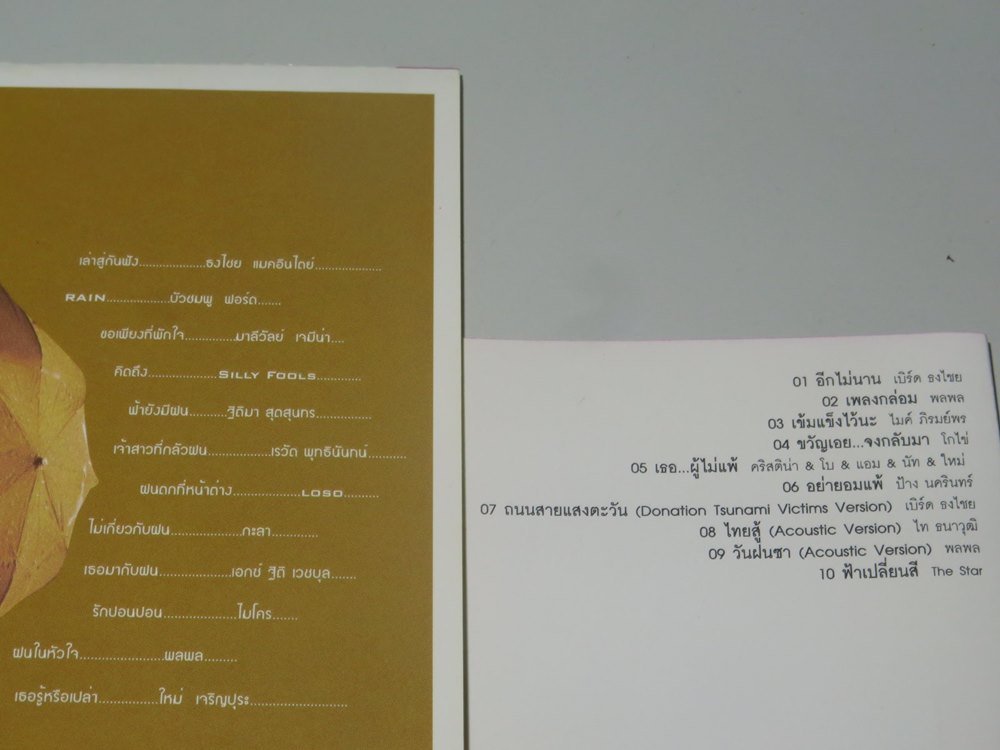 เล่าสู่กันฟัง....................ธงไชย แมคอินไตย์....................
RAIN...................บัวชมพู ฟอร์ด.......
ขอเพียงที่พักใจ...............มาลีวัลย์ เจมีน่า....
คิดถึง.....................SILLY FOOLS.............
ฟ้ายังมีฝน...........ฐิติมา สุตสุนทร.................
เจ้าสาวที่กลัวฝน...................เรวัต พุทธินันทน์............
ฝนตกที่หน้าต่าง....................LOSO..........
ไม่เกี่ยวกับฝน......................กะลา..............
เธอมากับฝน......................เอกซ์ ฐิติ เวชบุล.......
รักปอนปอน......................ไมโคร.......
ฝนในหัวใจ.........................พลพล..........
เธอรู้หรือเปล่า..................ใหม่ เจริญปุระ.............................
01 อีกไม่นาน เบิร์ด ธงไชย
02 เพลงกล่อม พลพล
03 เข้มแข็งไว้นะ ไมค์ ภิรมย์พร
04 ขวัญเอย...จงกลับมา โกไข่
05 เธอ...ผู้ไม่แพ้ คริสติน่า & โบ & แอม & นัท & ใหม่
06 อย่ายอมแพ้ ป้าง นครินทร์
07 ถนนสายแสงตะวัน (Donation Tsunami Victims Version) เบิร์ด ธงไชย
08 ไทยสู้ (Acoustic Version) ไท ธนาวุฒิ
09 วันฝนซา (Acoustic Version) พลพล
10 ฟ้าเปลี่ยนสี The Star